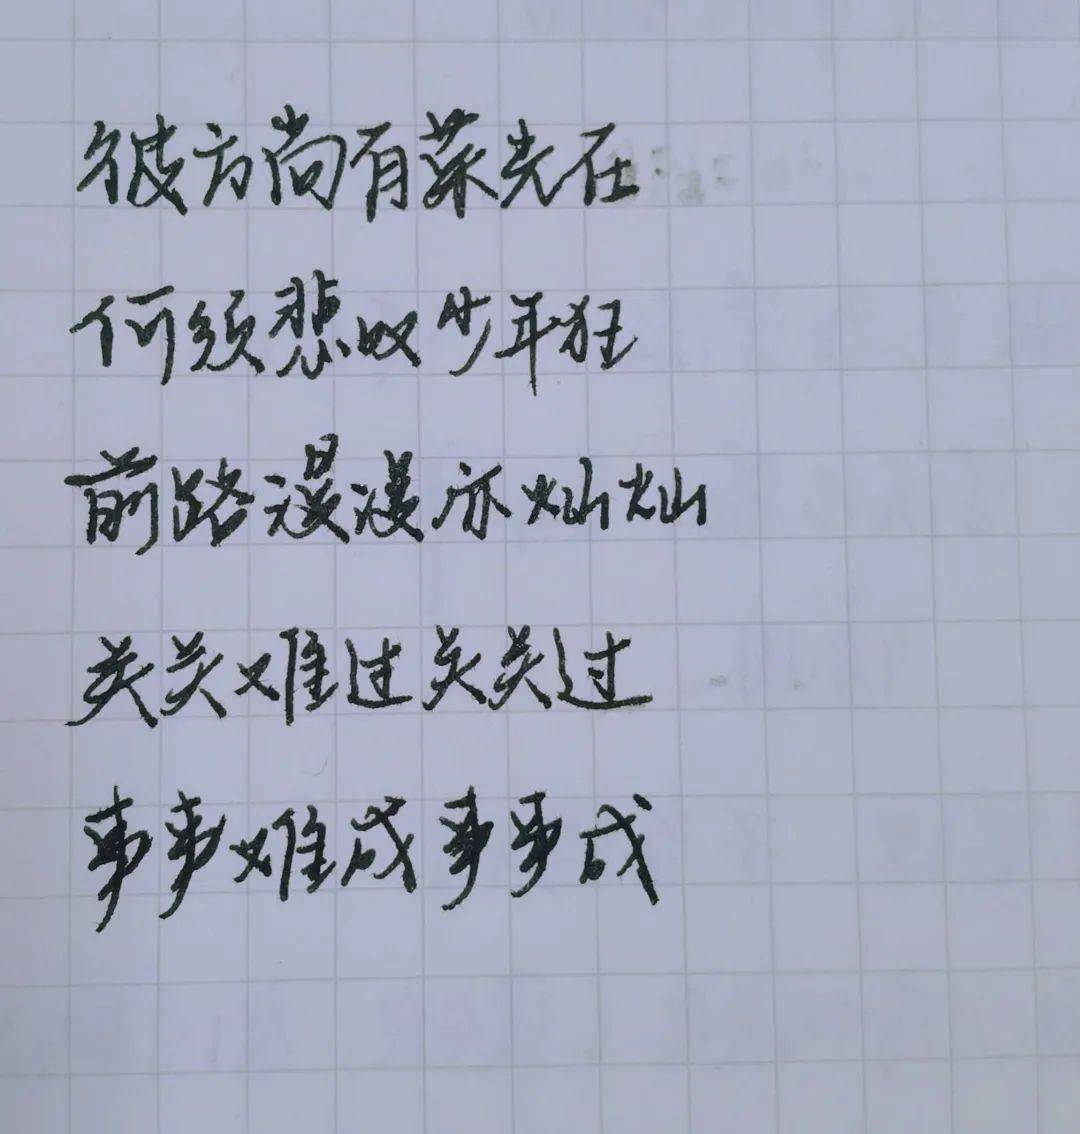 彼方尚有荣光在
何须悲叹少年狂
前路漫漫亦灿灿
关关难过关关过
事事难成事事成